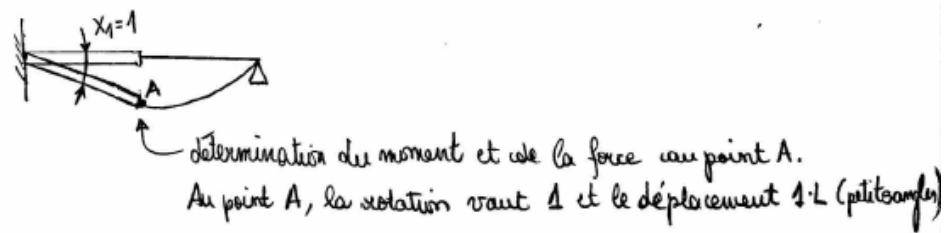 X₁=1
A
détermination du moment et de la force au point A.
Au point A, la rotation vaut 1 et le déplacement 1·L (petits angles)